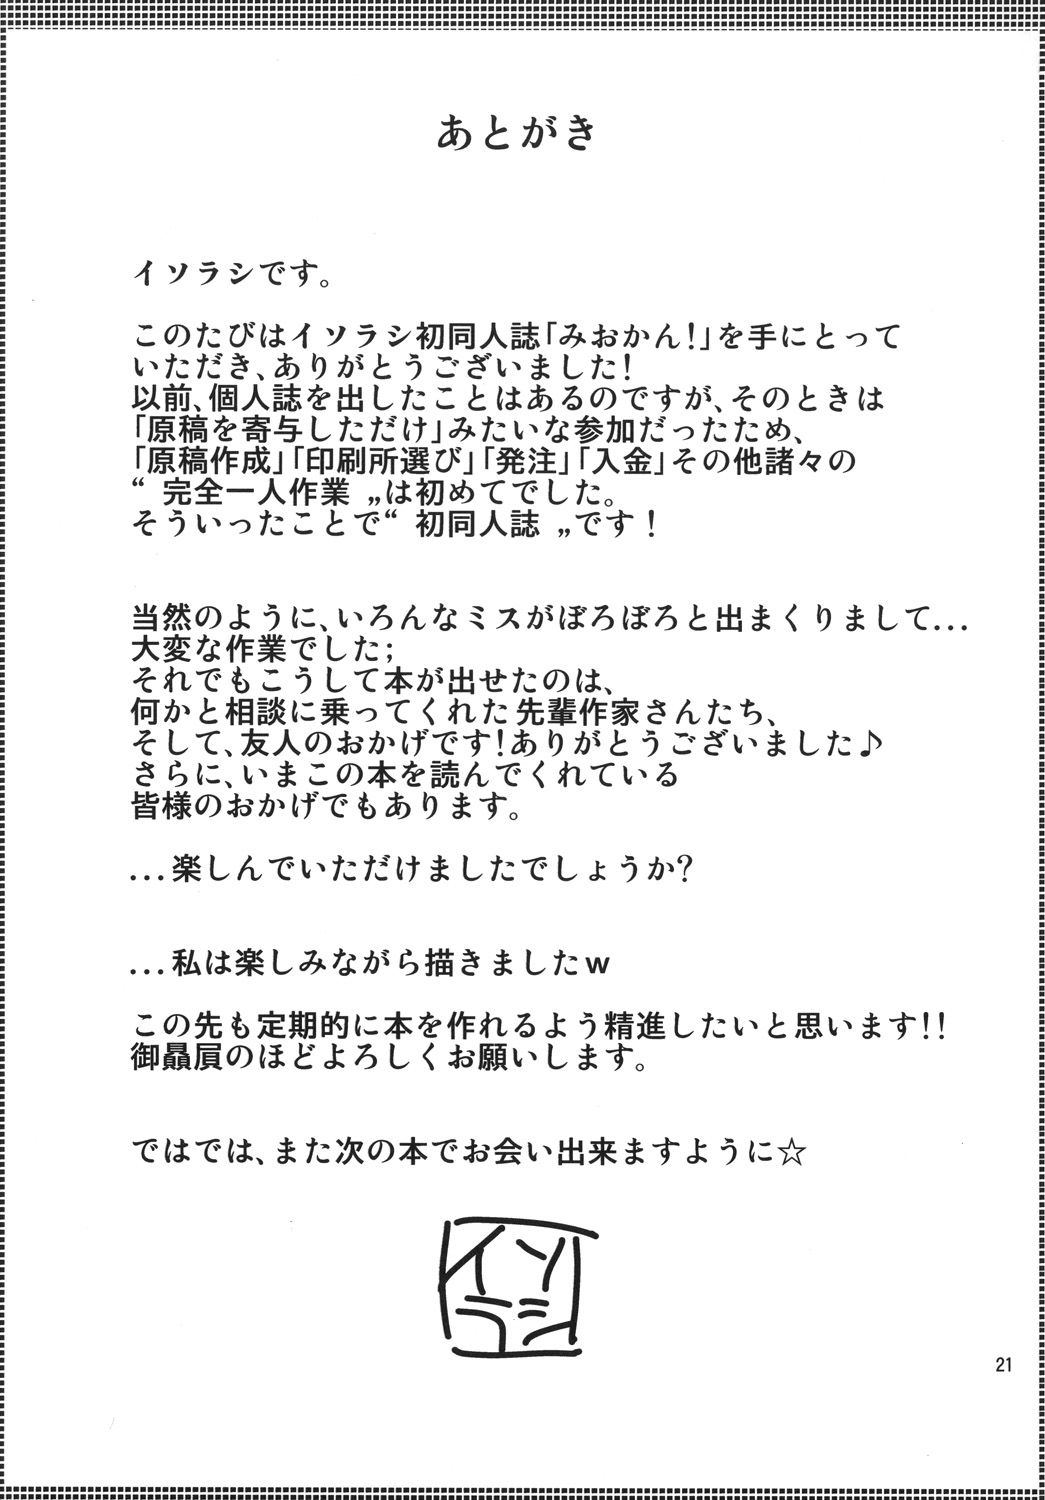 あとがき
イソラシです。
このたびはイソラシ初同人誌「みおかん!」を手にとって
いただき、ありがとうございました!
以前、個人誌を出したことはあるのですが、そのときは
「原稿を寄与しただけ」みたいな参加だったため、
「原稿作成」「印刷所選び」「発注」「入金」その他諸々の
“ 完全一人作業 „は初めてでした。
そういったことで“ 初同人誌 „です!
当然のように、いろんなミスがぼろぼろと出まくりまして...
大変な作業でした;
それでもこうして本が出せたのは、
何かと相談に乗ってくれた先輩作家さんたち、
そして、友人のおかげです!ありがとうございました♪
さらに、いまこの本を読んでくれている
皆様のおかげでもあります。
...楽しんでいただけましたでしょうか?
...私は楽しみながら描きましたw
この先も定期的に本を作れるよう精進したいと思います!!
御贔屓のほどよろしくお願いします。
ではでは、また次の本でお会い出来ますように☆
イソ
ラシ
21